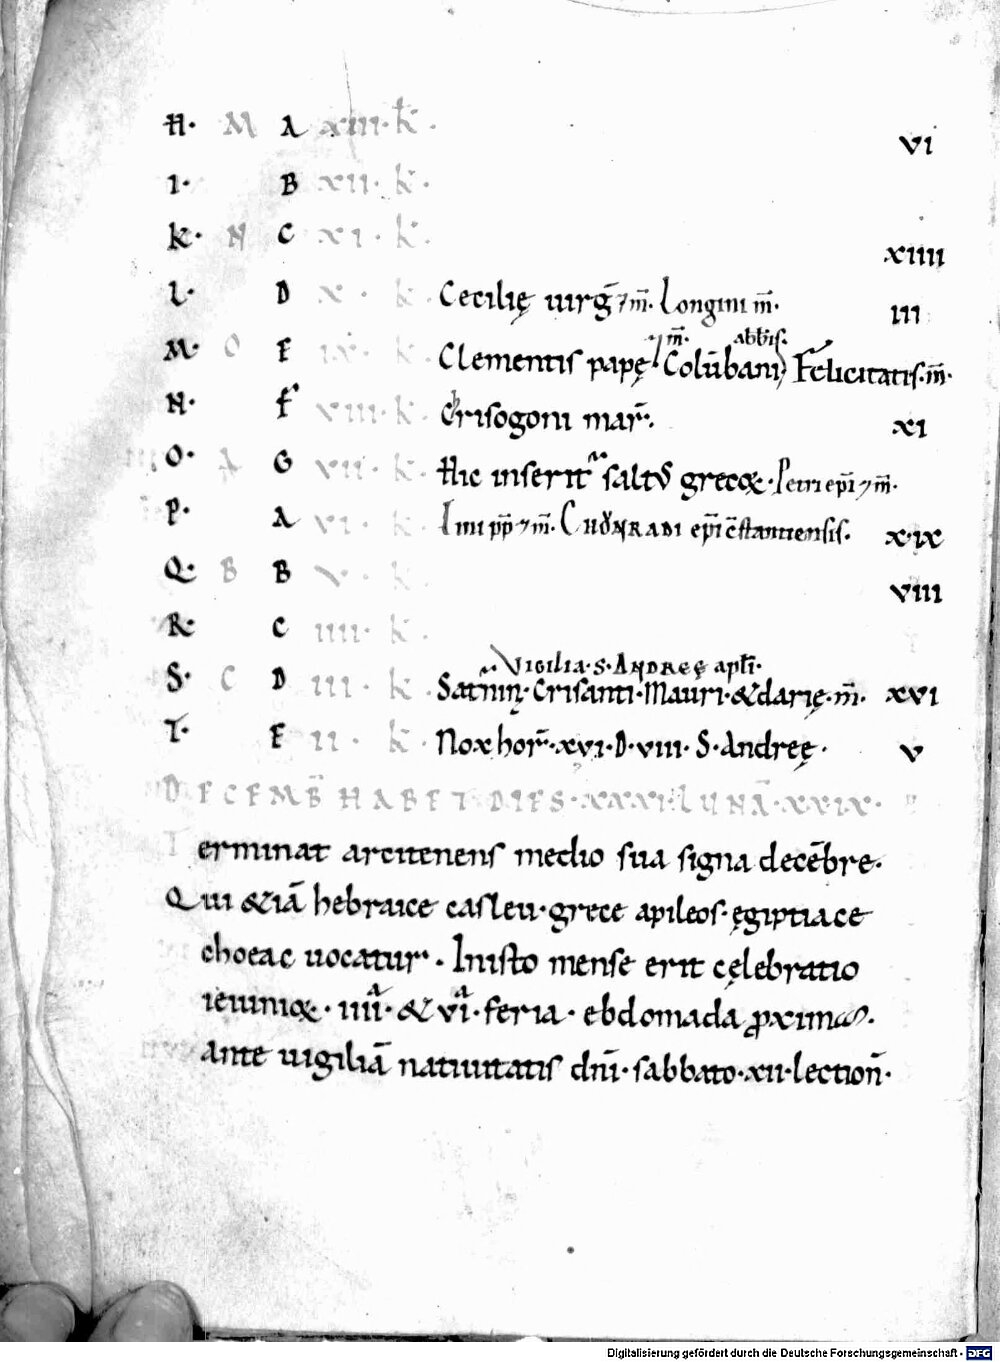 H· M A xiii· k̄· vi
I· B xii· k·
K· N C xi· k· xiiii
L· D x· k· Cecilię uirḡ ⁊ m̄. Longini m̄· iii
m̄. abb̄is.
M· O E ix· k· Clementis papę Colūbani Felicitatis·m̄·
N· F viii· k· Crisogoni mar̄· xi
O· A G vii· k· Hic inserit̄ saltus grecoꝝ· Petri ep̄i ⁊ m̄·
P· A vi· k· Lini pp̄ ⁊ m̄. Chuonradi ep̄i c̄stantiensis. xix
Q· B B v· k· viii
R· C iiii· k·
Vigilia·S·Andreę apl̄i·
S· C D iii· k· Saturnini· Crisanti· Mauri· & darię·m̄· xvi
T· E ii· k· Nox hor̄·xvi·D·viii· S·Andreę· v
DECEMB̄ HABET DIES·XXXI·LUNĀ·XXIX·
Terminat arcitenens medio sua signa decēbre·
Qui &iā hebraice casleu·grece apileos·ęgiptiace
choeac uocatur· In isto mense erit cęlebratio
ieiunioꝝ· iiii^a· & vi^a· feria· ebdomada ꝓxima·
Ante uigiliā natiuitatis dn̄i·sabbato·xii·lection̄·
Digitalisierung gefördert durch die Deutsche Forschungsgemeinschaft - DFG